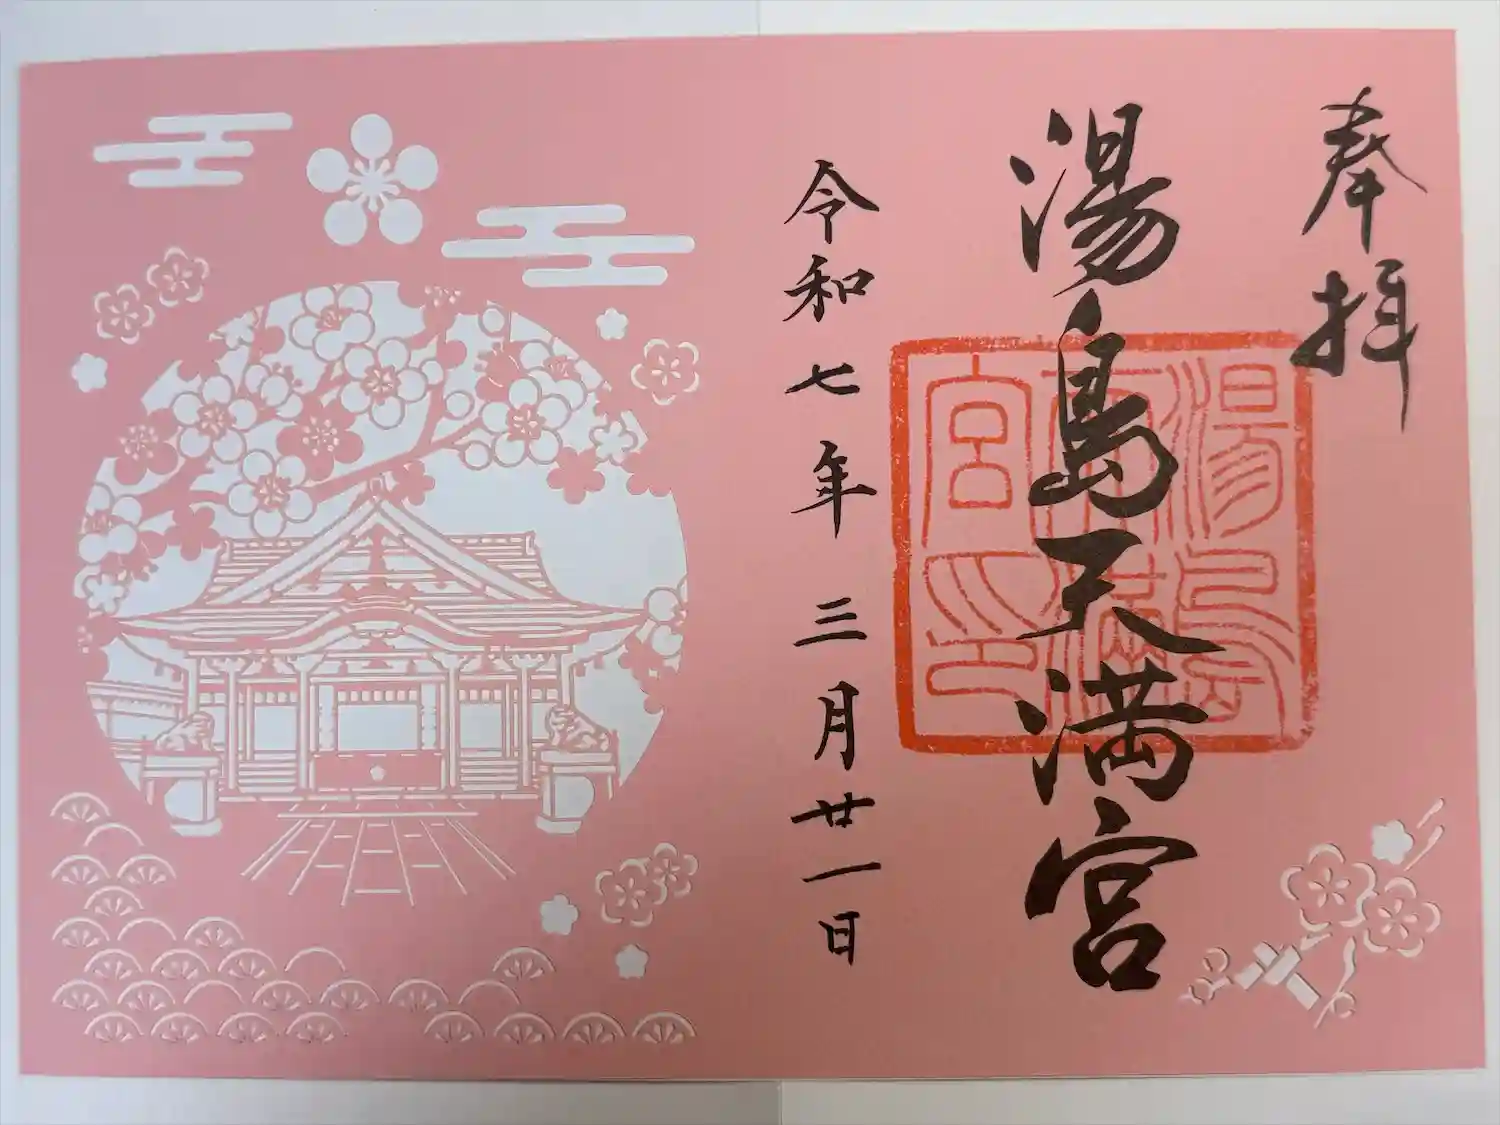 奉拝
湯島天満宮
湯島天満宮印
令和七年三月廿一日